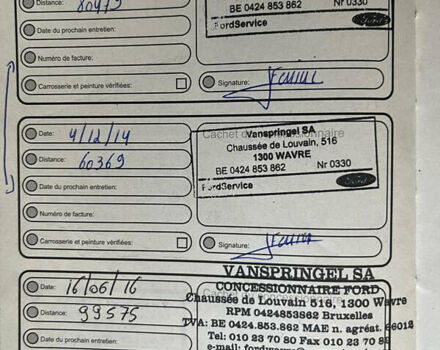 Distance:
BE 0424 853 862 Nr 0330
Date du prochain entretien:
FordService Ford
Numéro de facture:
Carrosserie et peinture vérifiées: Signature:
Date: 4/12/14 Cachet du concessionnaire
Vanspringel SA
Chaussée de Louvain, 516
Distance: 60369
1300 WAVRE
BE 0424 853 862 Nr 0330
Date du prochain entretien:
FordService Ford
Numéro de facture:
Carrosserie et peinture vérifiées: Signature:
VANSPRINGEL SA
Date: 16/06/16
CONCESSIONNAIRE FORD
Chaussée de Louvain 516, 1300 Wavre
Distance: 99575
RPM 0424853862 Bruxelles
TVA: BE 0424.853.862 MAE n. agréat. 66012
Date du prochain
entretien:
Tel: 010 23 70 80 Fax 010 23 70 82
e-mail: